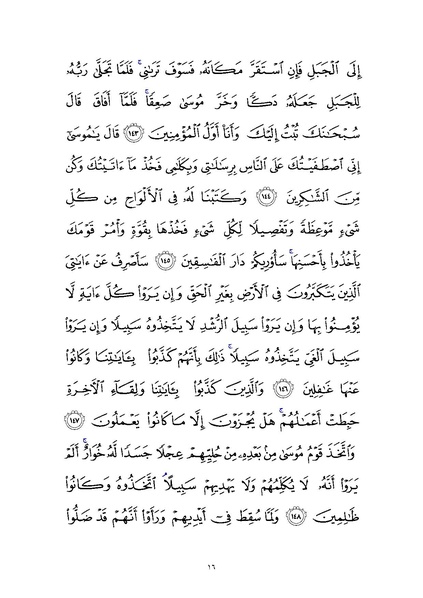 إِلَى ٱلْجَبَلِ فَإِنِ ٱسْتَقَرَّ مَكَانَهُۥ فَسَوْفَ تَرَىٰنِىۚ فَلَمَّا تَجَلَّىٰ رَبُّهُۥ
لِلْجَبَلِ جَعَلَهُۥ دَكًّا وَخَرَّ مُوسَىٰ صَعِقًاۚ فَلَمَّآ أَفَاقَ قَالَ
سُبْحَٰنَكَ تُبْتُ إِلَيْكَ وَأَنَا۠ أَوَّلُ ٱلْمُؤْمِنِينَ ١٤٣ قَالَ يَٰمُوسَىٰٓ
إِنِّى ٱصْطَفَيْتُكَ عَلَى ٱلنَّاسِ بِرِسَٰلَٰتِى وَبِكَلَٰمِى فَخُذْ مَآ ءَاتَيْتُكَ وَكُن
مِّنَ ٱلشَّٰكِرِينَ ١٤٤ وَكَتَبْنَا لَهُۥ فِى ٱلْأَلْوَاحِ مِن كُلِّ
شَىْءٍ مَّوْعِظَةً وَتَفْصِيلًا لِّكُلِّ شَىْءٍ فَخُذْهَا بِقُوَّةٍ وَأْمُرْ قَوْمَكَ
يَأْخُذُوا۟ بِأَحْسَنِهَاۚ سَأُو۟رِيكُمْ دَارَ ٱلْفَٰسِقِينَ ١٤٥ سَأَصْرِفُ عَنْ ءَايَٰتِىَ
ٱلَّذِينَ يَتَكَبَّرُونَ فِى ٱلْأَرْضِ بِغَيْرِ ٱلْحَقِّ وَإِن يَرَوْا۟ كُلَّ ءَايَةٍ لَّا
يُؤْمِنُوا۟ بِهَا وَإِن يَرَوْا۟ سَبِيلَ ٱلرُّشْدِ لَا يَتَّخِذُوهُ سَبِيلًا وَإِن يَرَوْا۟
سَبِيلَ ٱلْغَىِّ يَتَّخِذُوهُ سَبِيلًاۚ ذَٰلِكَ بِأَنَّهُمْ كَذَّبُوا۟ بِـَٔايَٰتِنَا وَكَانُوا۟
عَنْهَا غَٰفِلِينَ ١٤٦ وَٱلَّذِينَ كَذَّبُوا۟ بِـَٔايَٰتِنَا وَلِقَآءِ ٱلْءَاخِرَةِ
حَبِطَتْ أَعْمَٰلُهُمْۚ هَلْ يُجْزَوْنَ إِلَّا مَا كَانُوا۟ يَعْمَلُونَ ١٤٧
وَٱتَّخَذَ قَوْمُ مُوسَىٰ مِنۢ بَعْدِهِۦ مِنْ حُلِيِّهِمْ عِجْلًا جَسَدًا لَّهُۥ خُوَارٌۚ أَلَمْ
يَرَوْا۟ أَنَّهُۥ لَا يُكَلِّمُهُمْ وَلَا يَهْدِيهِمْ سَبِيلًاۘ ٱتَّخَذُوهُ وَكَانُوا۟
ظَٰلِمِينَ ١٤٨ وَلَمَّا سُقِطَ فِىٓ أَيْدِيهِمْ وَرَأَوْا۟ أَنَّهُمْ قَدْ ضَلُّوا۟
١٦